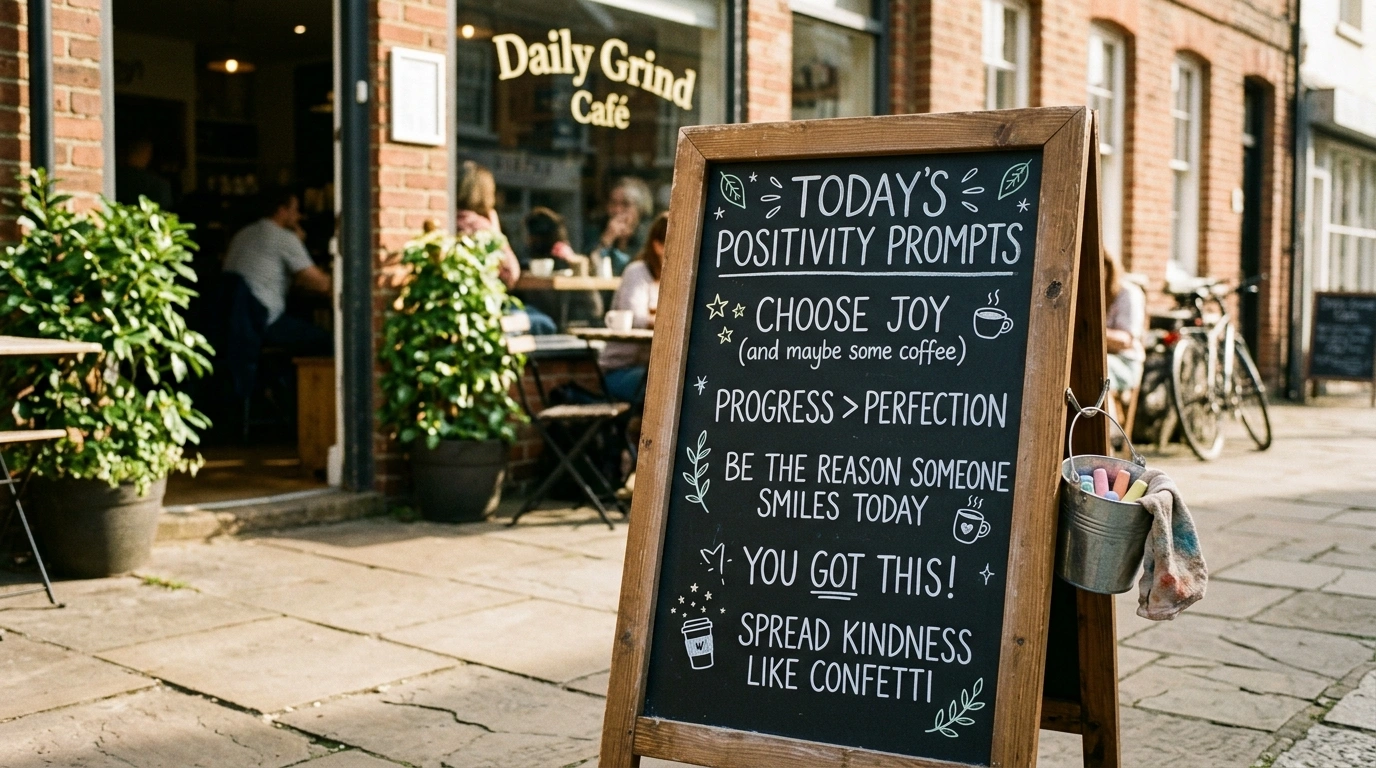 Daily Grind
Café
TODAY'S
POSITIVITY PROMPTS
CHOOSE JOY
(and maybe some coffee)
PROGRESS > PERFECTION
BE THE REASON SOMEONE
SMILES TODAY
YOU GOT THIS!
W
SPREAD KINDNESS
LIKE CONFETTI